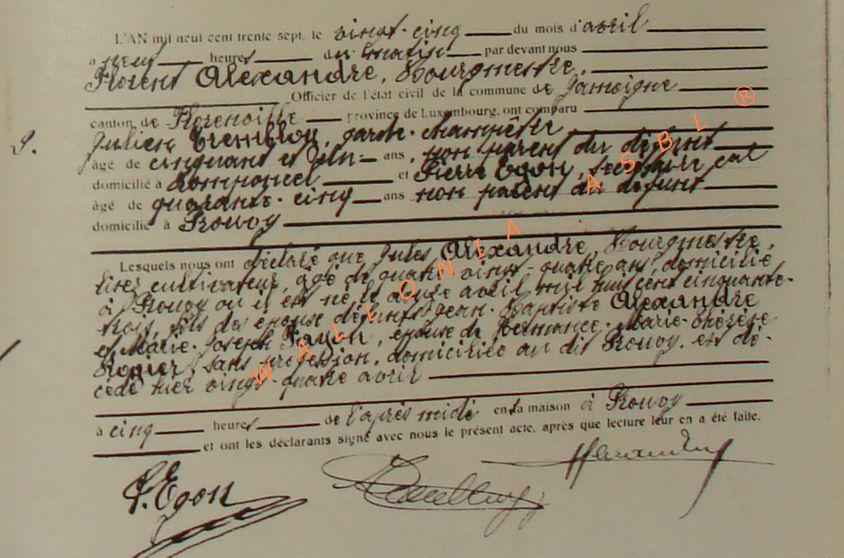 L'AN mil neuf cent trente sept, le vingt-cinq du mois d'avril
à neuf heures du matin par devant nous
Florent Alexandre, Bourgmestre,
Officier de l'état civil de la commune de Jamoigne
canton de Florenville province de Luxembourg, ont comparu
9. Julien Trembloy, garde-champêtre
âgé de cinquante et un ans, non parent du défunt
domicilié à Romponcel et Pierre Egon, secrétaire cal
âgé de quarante-cinq ans non parent du défunt
domicilié à Prouvy
Lesquels nous ont déclaré que Jules Alexandre, Bourgmestre,
cultivateur, âgé de quatre vingt-quatre ans, domicilié
à Prouvy où il est né le avril mil huit cent cinquante-
trois, fils des époux défunts Jean-Baptiste Alexandre
et Marie-Joseph époux de Hermance-Marie-Thérèse
Rogier, sans profession, domiciliée au dit Prouvy est dé-
cédé hier vingt-quatre avril
à cinq heures de l'après midi en sa maison à Prouvy
et ont les déclarants signé avec nous le présent acte, après que lecture leur en a été faite.
P. Egon
WALLONIA ASBL ®